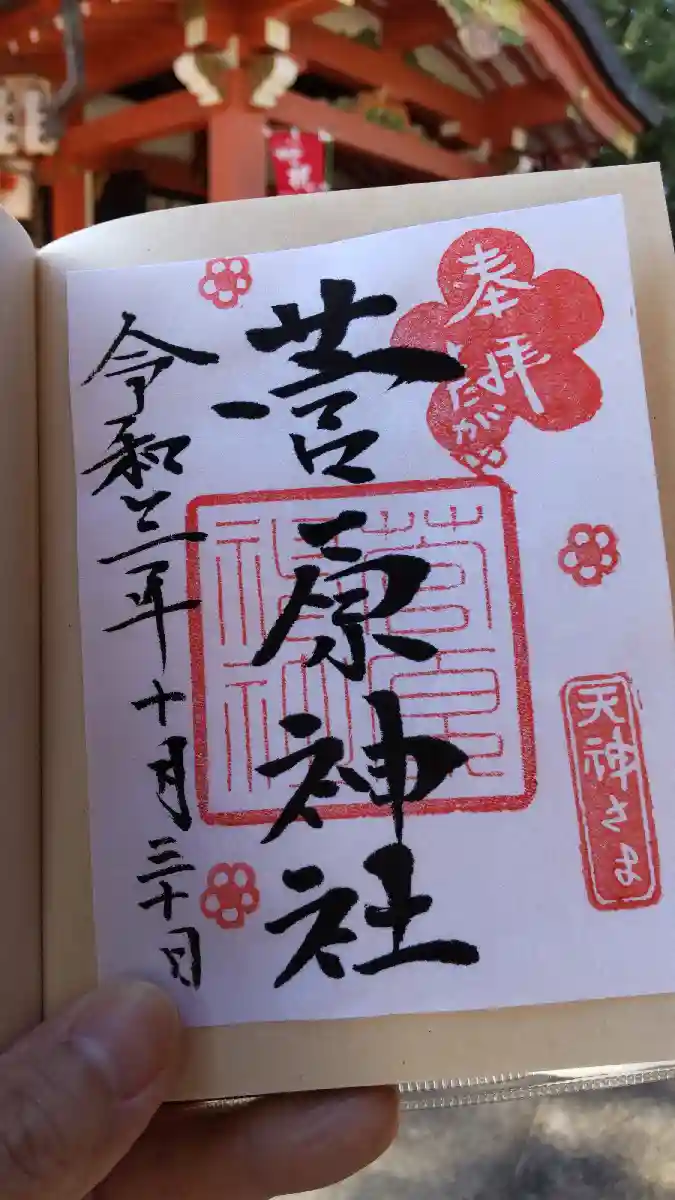 奉拝
天神さま
菅原神社
令和三年十月三十日